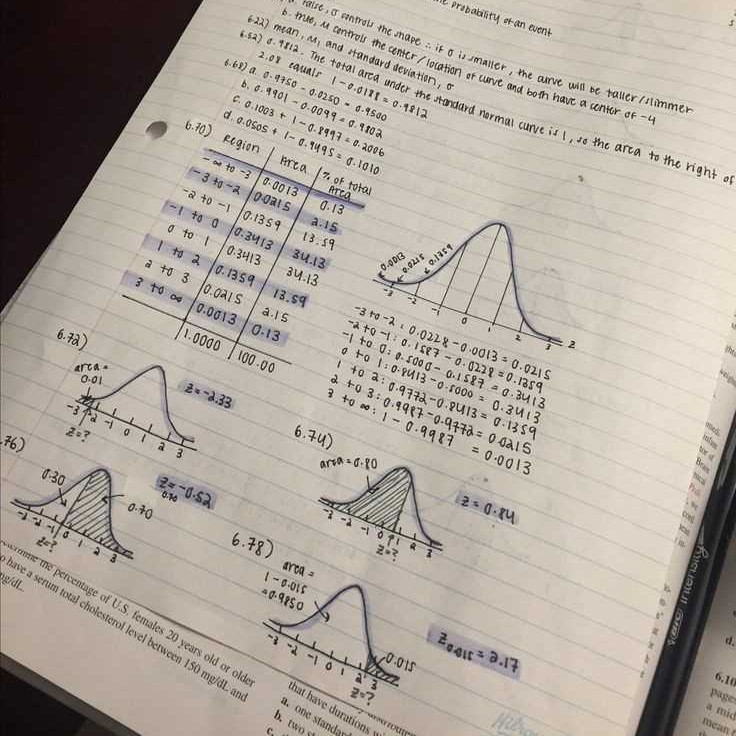 probability of an event
false, σ controls the shape ∴ if σ is smaller, the curve will be taller/slimmer
b. true, μ controls the center/location of curve and both have a center of -4
6.22) mean, μ, and standard deviation, σ
6.52) 0.9812. The total area under the standard normal curve is 1, so the area to the right of
2.08 equals 1-0.0188 = 0.9812
6.68) a. 0.9750 - 0.0250 = 0.9500
b. 0.9901 - 0.0099 = 0.9802
c. 0.1003 + 1 - 0.8997 = 0.2006
d. 0.0505 + 1 - 0.9495 = 0.1010
6.70) Region Area % of total Area
-∞ to -3 0.0013 0.13
-3 to -2 0.0215 2.15
-2 to -1 0.1359 13.59
-1 to 0 0.3413 34.13
0 to 1 0.3413 34.13
1 to 2 0.1359 13.59
2 to 3 0.0215 2.15
3 to ∞ 0.0013 0.13
1.0000 100.00
0.0013 0.0215 0.1359
-3 -2 -1 0 1 2 3 z
-3 to -2: 0.0228 - 0.0013 = 0.0215
-2 to -1: 0.1587 - 0.0228 = 0.1359
-1 to 0: 0.5000 - 0.1587 = 0.3413
0 to 1: 0.8413 - 0.5000 = 0.3413
1 to 2: 0.9772 - 0.8413 = 0.1359
2 to 3: 0.9987 - 0.9772 = 0.0215
3 to ∞: 1 - 0.9987 = 0.0013
6.72)
area =
0.01
z = -2.33
-3 -2 -1 0 1 2 3
z=?
6.74)
area = 0.80
z = 0.84
-3 -2 -1 0 1 2 3
z=?
.76)
0.30
0.70
z = -0.52
0.70
-3 -2 -1 0 1 2 3
z=?
6.78)
area =
1-0.015
=0.9850
0.015
z0.015 = 2.17
-3 -2 -1 0 1 2 3
z=?
the percentage of U.S. females 20 years old or older
have a serum total cholesterol level between 150 mg/dL and
mg/dL.
that have durations
a. one standard
b. two
c.
intensity
d.
6.10
pages
a mid
mean